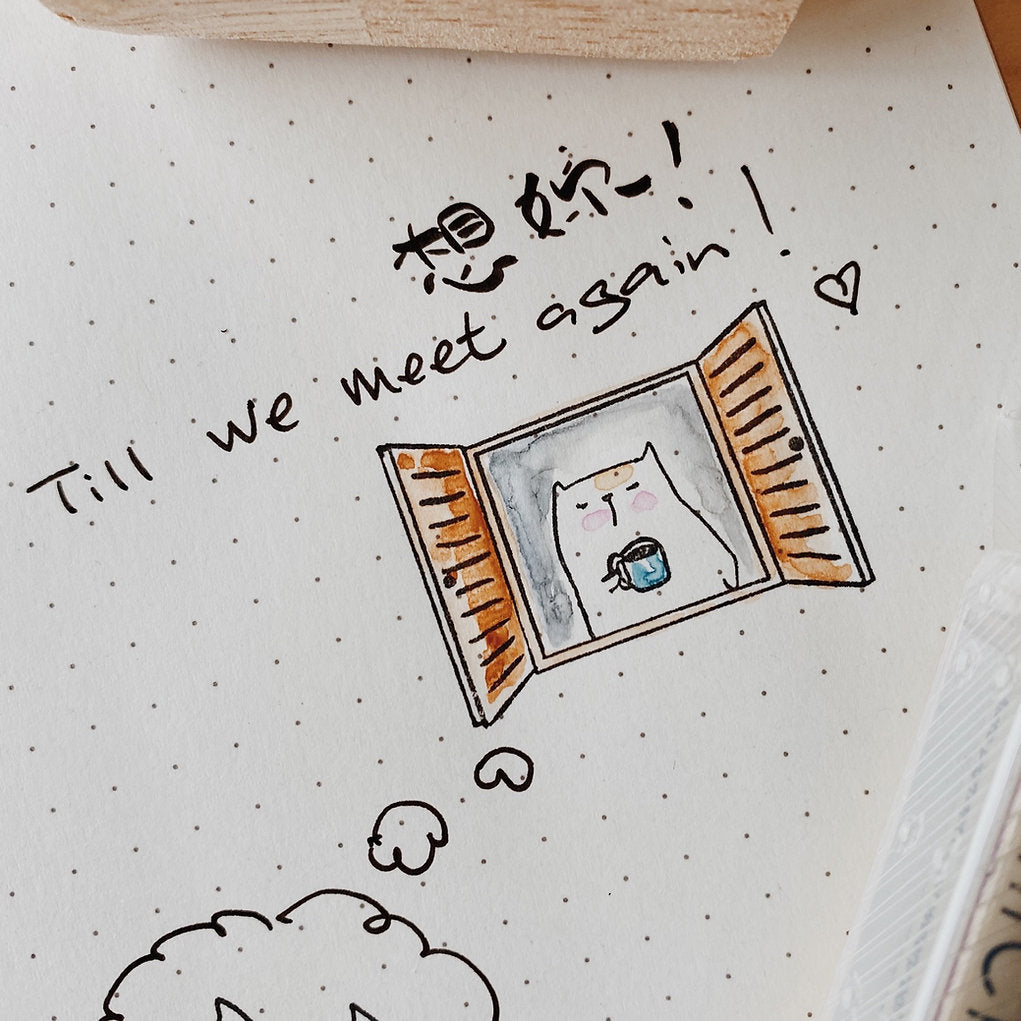 想你!
Till we meet again!